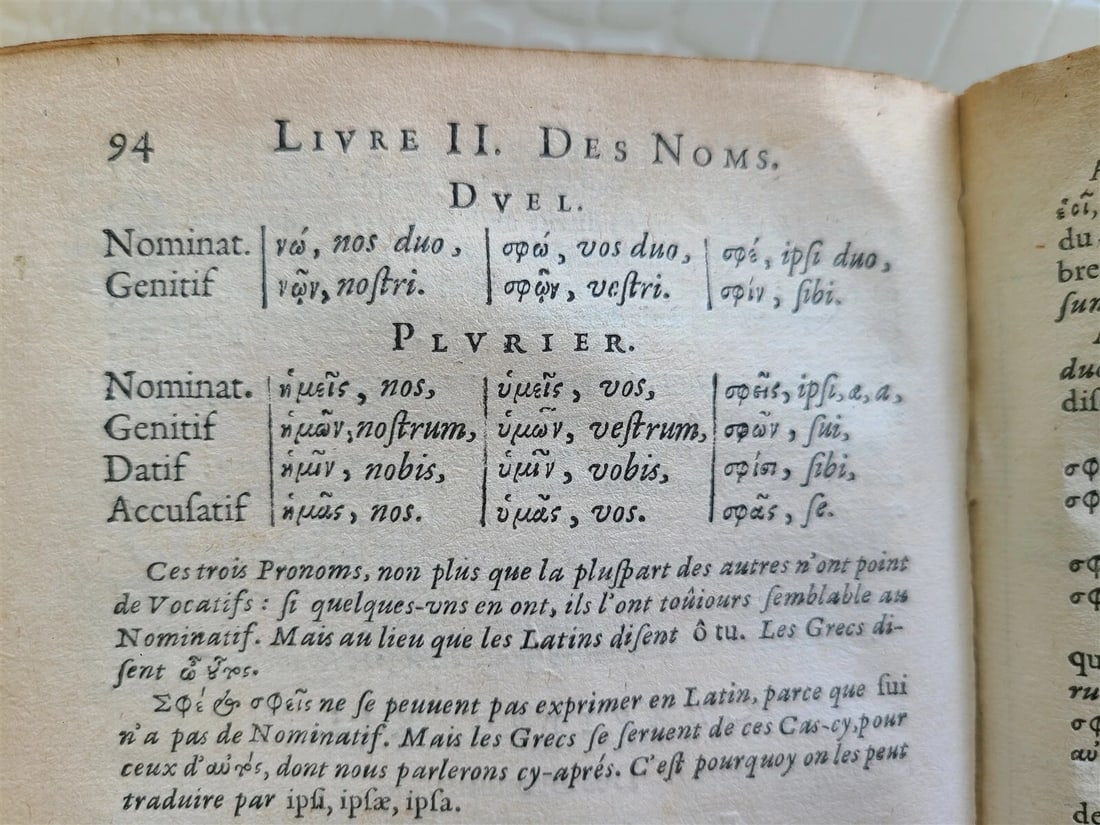 94 LIVRE II. DES NOMS.
DVEL.
Nominat. νώ, nos duo, σφώ, vos duo, σφέ, ipſi duo,
Genitif νῶϊν, noſtri. σφῶϊν, veſtri. σφίν, ſibi.
PLVRIER.
Nominat. ἡμεῖς, nos, ὑμεῖς, vos, σφεῖς, ipſi, æ, a,
Genitif ἡμῶν, noſtrum, ὑμῶν, veſtrum, σφῶν, ſui,
Datif ἡμῖν, nobis, ὑμῖν, vobis, σφίσι, ſibi,
Accuſatif ἡμᾶς, nos. ὑμᾶς, vos. σφᾶς, ſe.
Ces trois Pronoms, non plus que la pluſpart des autres n'ont point
de Vocatifs : ſi quelques-vns en ont, ils l'ont toûiours ſemblable au
Nominatif. Mais au lieu que les Latins diſent ô tu. Les Grecs di-
ſent ὦ οὗτος.
Σφέ & σφεῖς ne ſe peuuent pas exprimer en Latin, parce que ſui
n'a pas de Nominatif. Mais les Grecs ſe ſeruent de ces Cas-cy, pour
ceux d'αὐτός, dont nous parlerons cy-aprés. C'eſt pourquoy on les peut
traduire par ipſi, ipſæ, ipſa.
du
bre
ſun
duo
diſ
σφ
σφ
σφ
σφ
qu
ru
σφ
αὐ
de